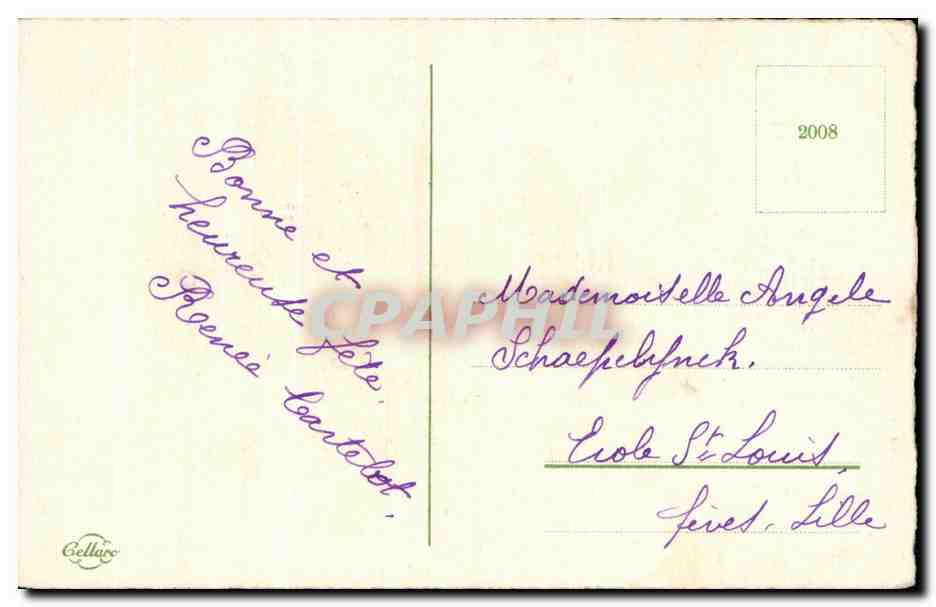 Bonne et
heureuse fête.
Renée Cartelot.
Cellaro
CPAPHIL
2008
Mademoiselle Angele
Schaepelynck.
Ecole St Louis,
fives. Lille